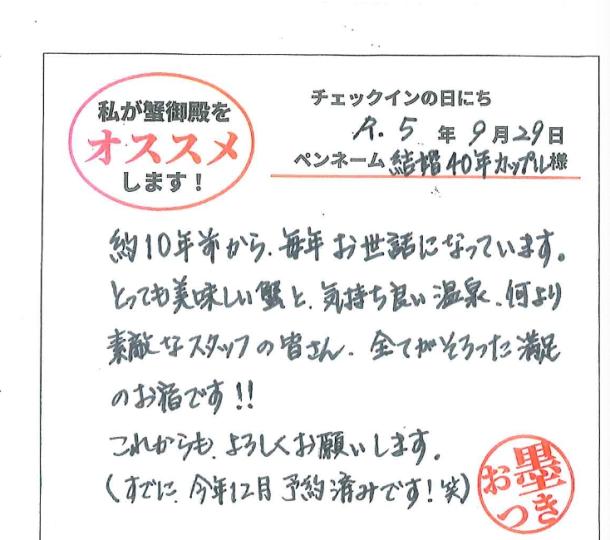 私が蟹御殿を
オススメ
します！
チェックインの日にち
R.5年9月29日
ペンネーム 結婚40年カップル様
約10年前から、毎年お世話になっています。
とっても美味しい蟹と、気持ち良い温泉、何より
素敵なスタッフの皆さん、全てがそろった満足
のお宿です!!
これからも、よろしくお願いします。
(すでに、今年12月予約済みです!笑)
お墨つき